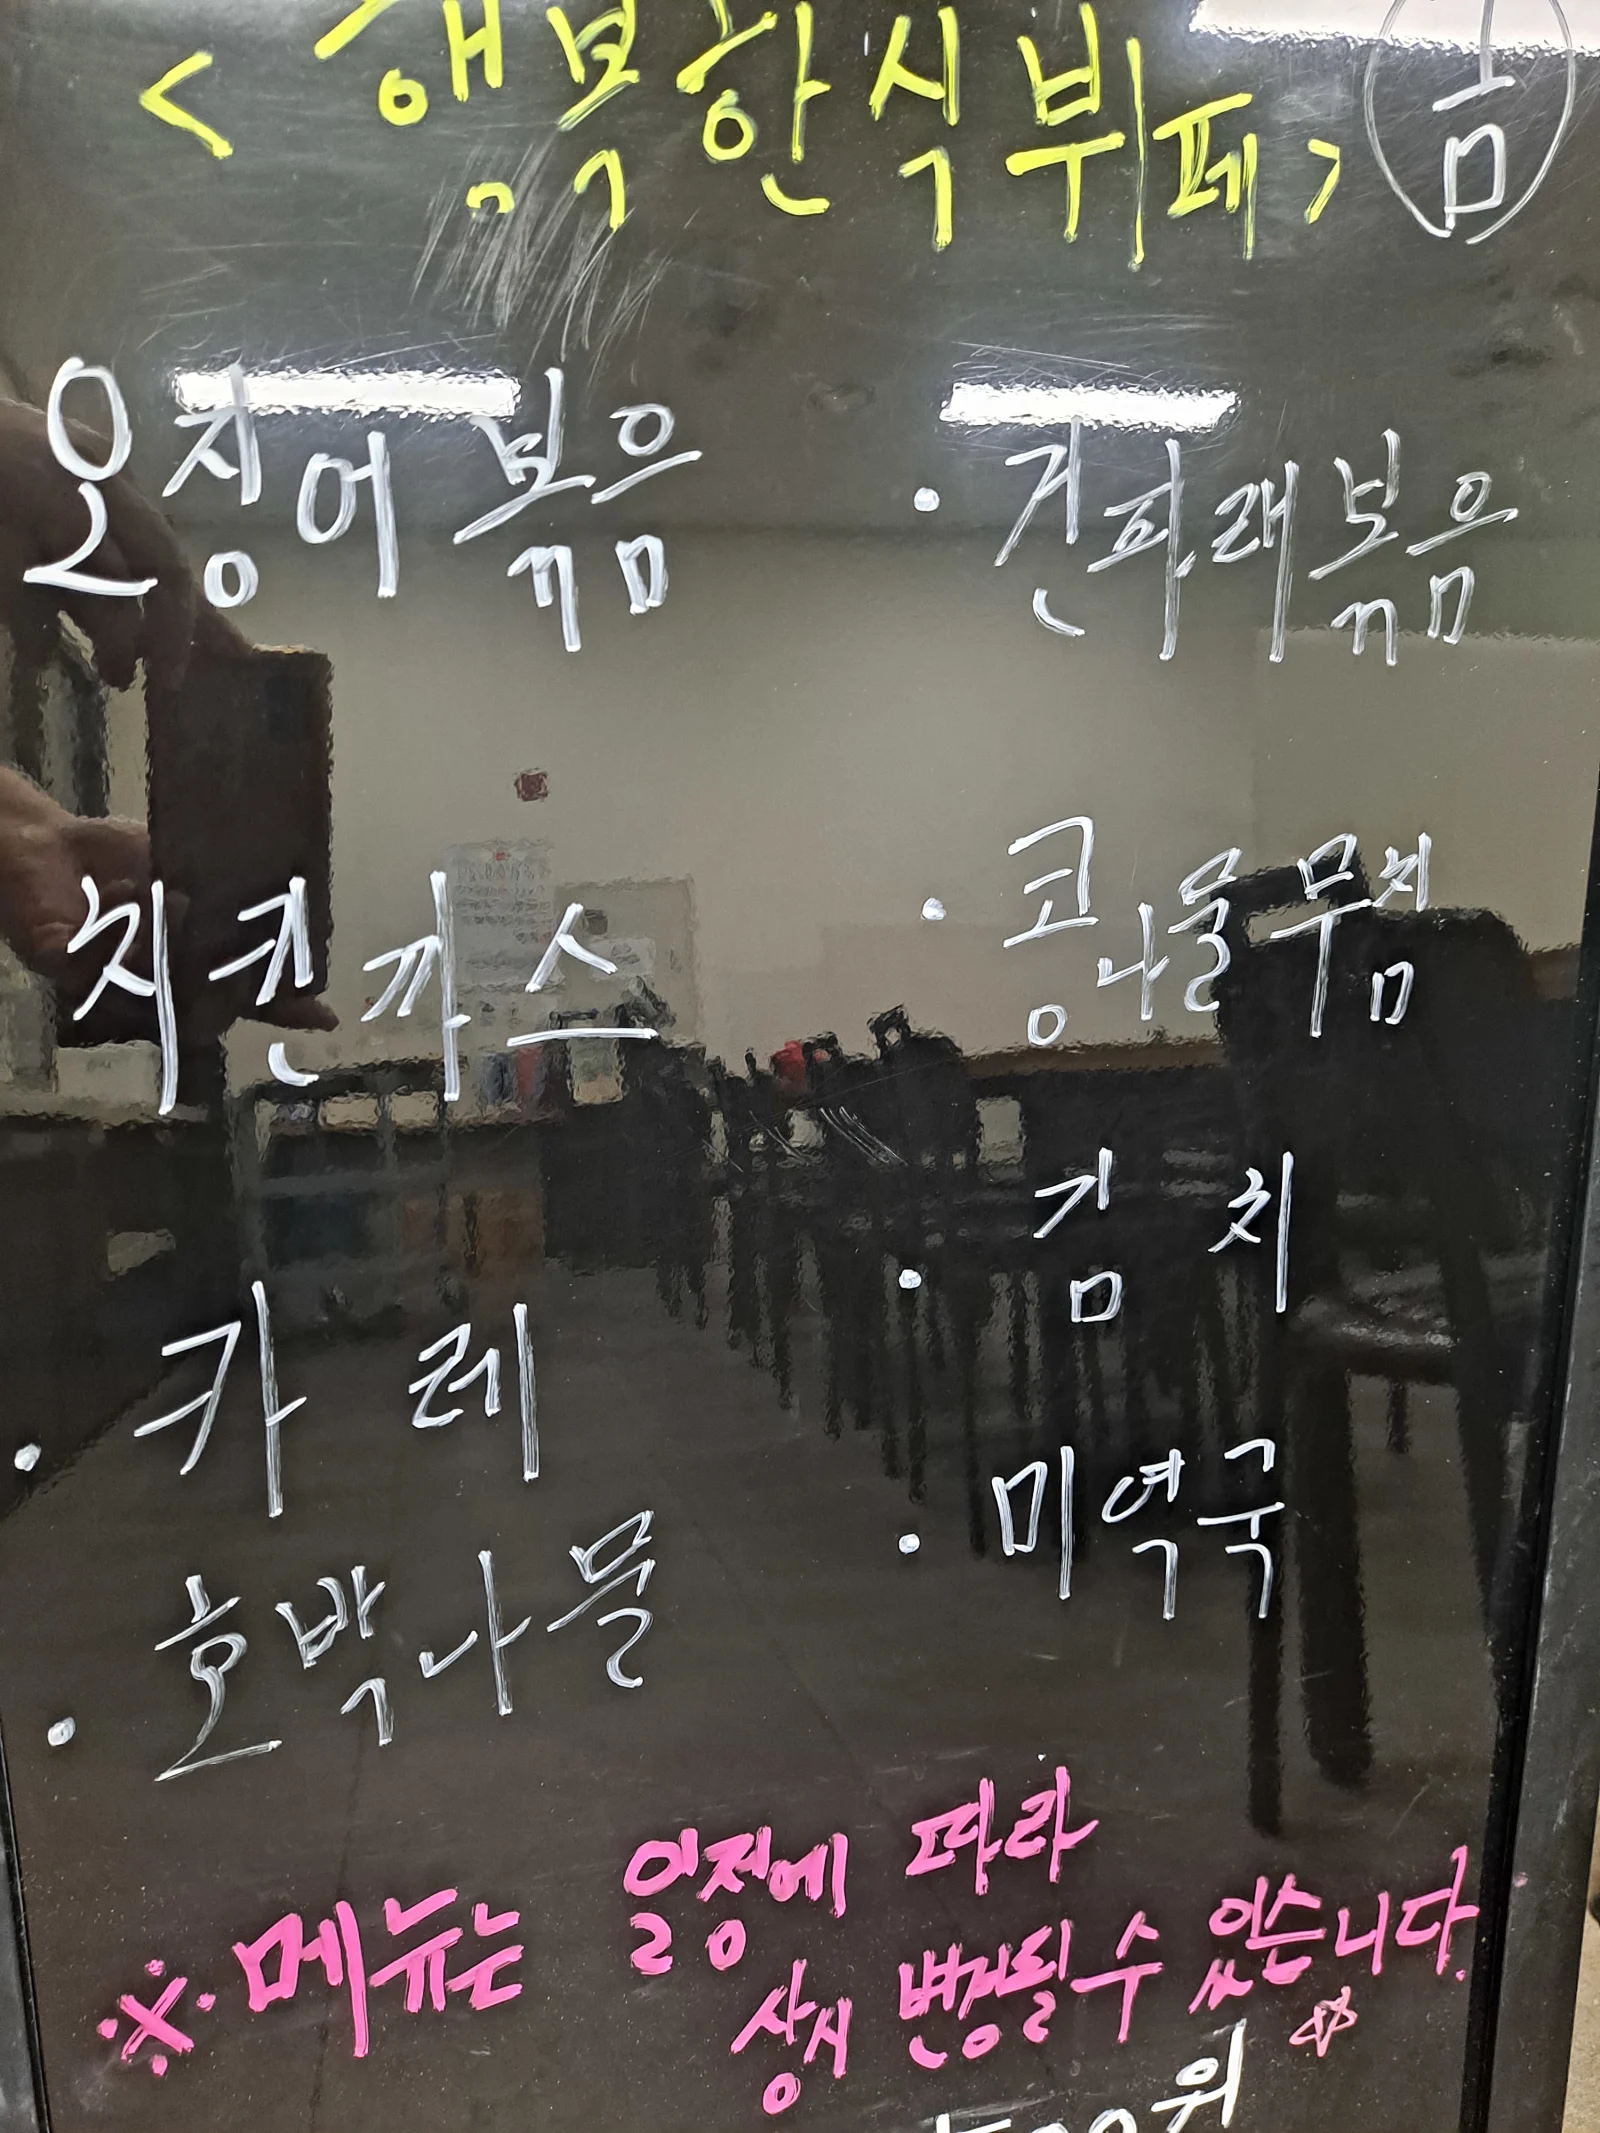 <행복한식뷔페> 금
오징어볶음
· 건파래볶음
치킨까스
· 콩나물무침
· 카레
· 김치
· 호박나물
· 미역국
※ 메뉴는 일정에 따라
상시 변경될수 있습니다.
원